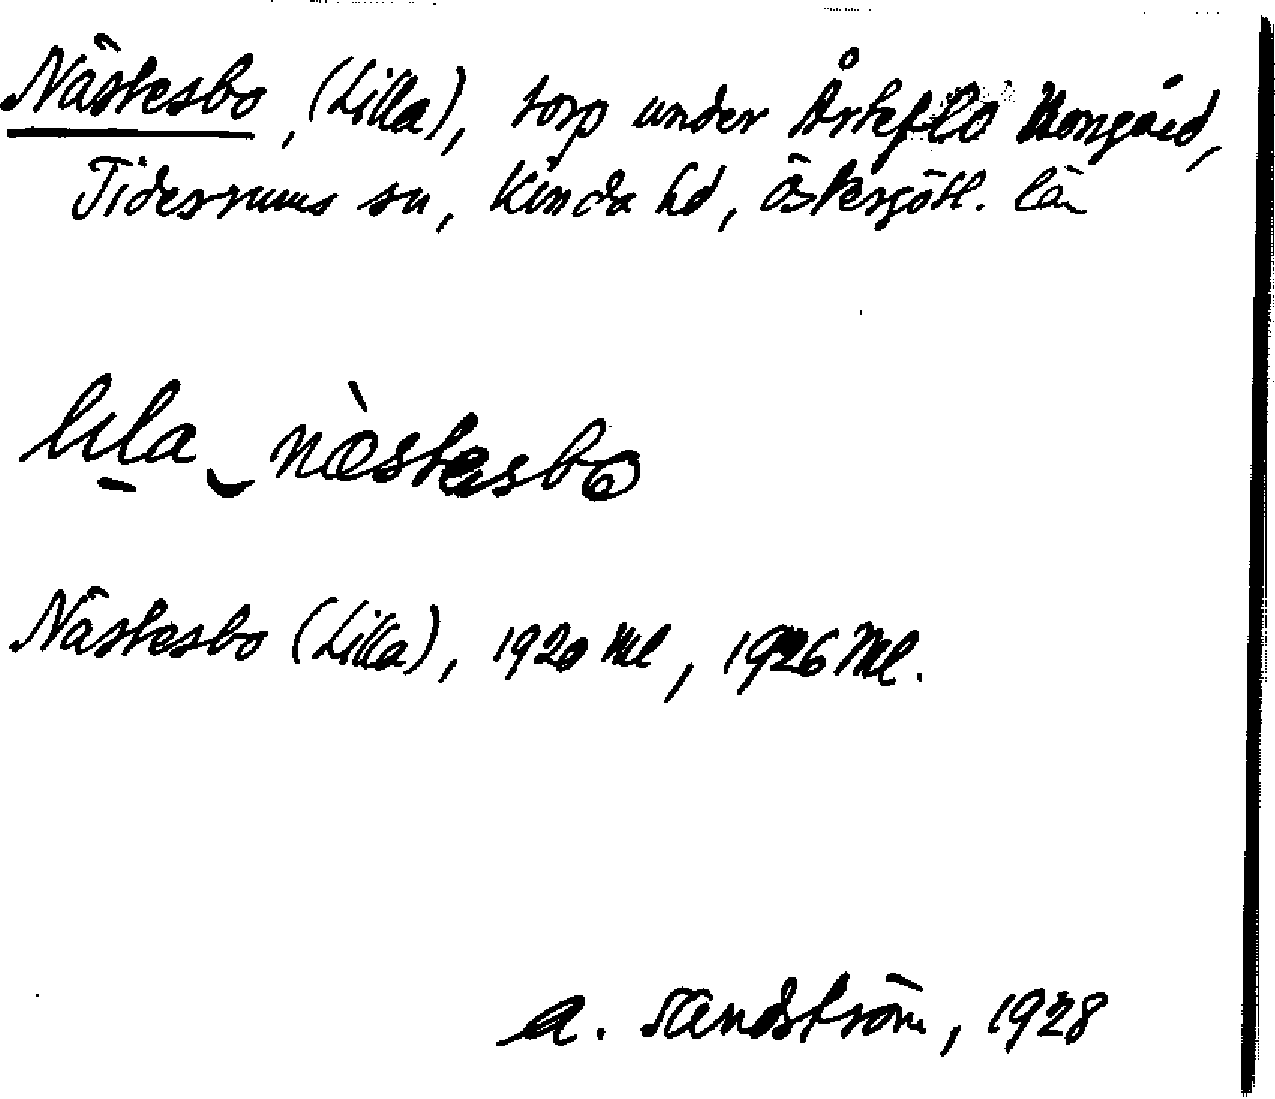 Nästesbo, (Lilla), torp under Årteflo Norrgård,
Tidersrums sn, Kinda hd, Östergötl. län
lila næstesbo
Nästesbo (Lilla), 1920 Ml, 1926 Ml.
A. Sandström, 1928